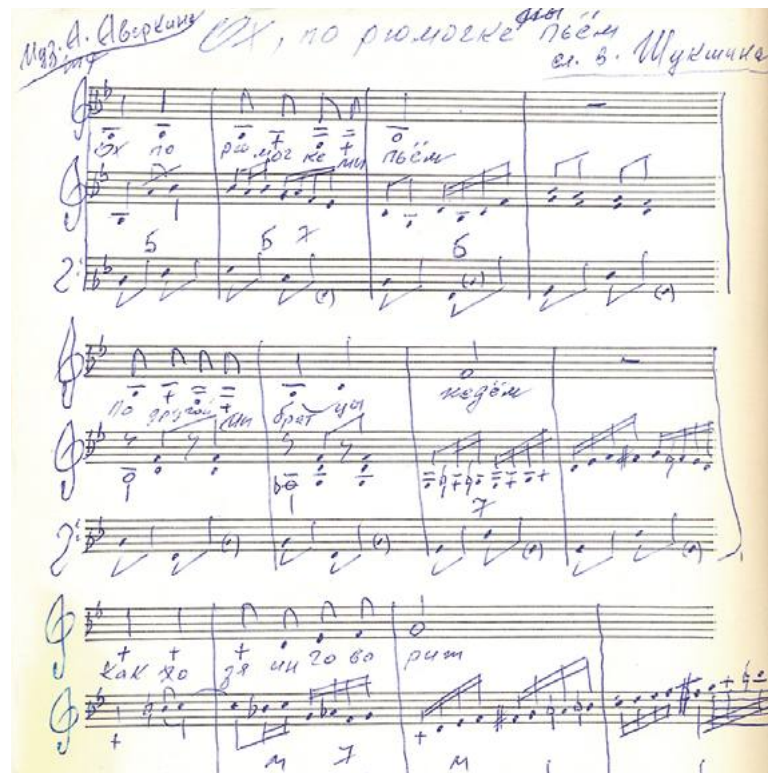 Муз. А. Аверкина
Ох, по рюмочке мы пьём
сл. В. Шукшина
Ох по рю моч ке ми пьём
Б Б 7 Б
По другой ми брат цы
7
Как хо зя ин го во рит
м 7 м